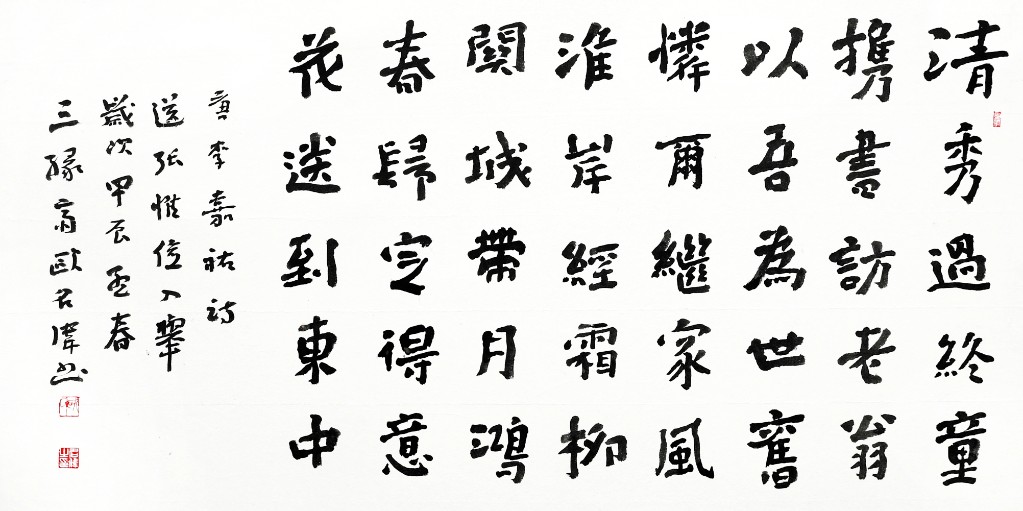 清秀過終童
攜書訪老翁
以吾為世舊
憐爾繼家風
淮岸經霜柳
關城帶月鴻
春歸定得意
花送到東中
唐李嘉祐詩
送張惟儉入舉
歲次甲辰孟春
三緣齋歐君偉書